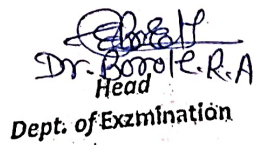 Dr. Borole. R. A
Head
Dept. of Exzmination